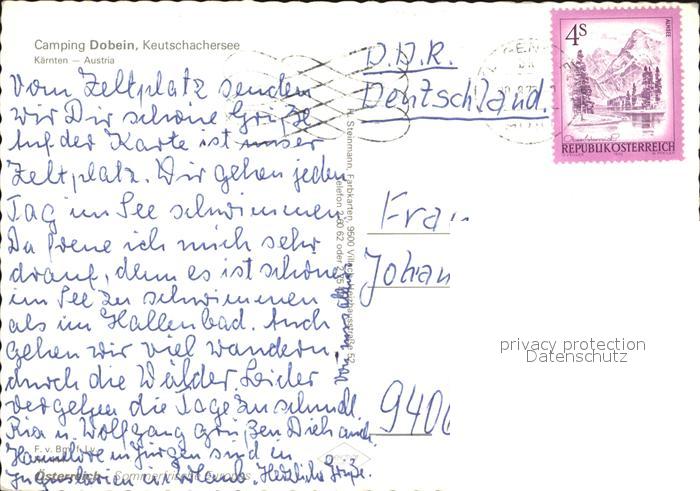 Camping Dobein, Keutschachersee
Kärnten — Austria
Vom Zeltplatz senden
wir Dir schöne Grüße
Auf der Karte ist unser
Zeltplatz. Wir gehen jeden
Tag im See schwimmen
Da freue ich mich sehr
drauf, denn es ist schöner
im See zu schwimmen
als im Hallenbad. Auch
gehen wir viel wandern,
durch die Wälder. Leider
vergehen die Tage zu schnell.
Ria u. Wolfgang grüßen Dich auch.
Hannelore u. Jürgen sind in
Jugoslavien in Urlaub. Herzliche Grüße.
F. v.
Österreich Sommerfrische Europas
Steinmann, Farbkarten, 9500 Villach
Telefon
D.D.R.
Deutschland.
Frau
Johan
940
4S
ALMSEE
REPUBLIK ÖSTERREICH
privacy protection
Datenschutz